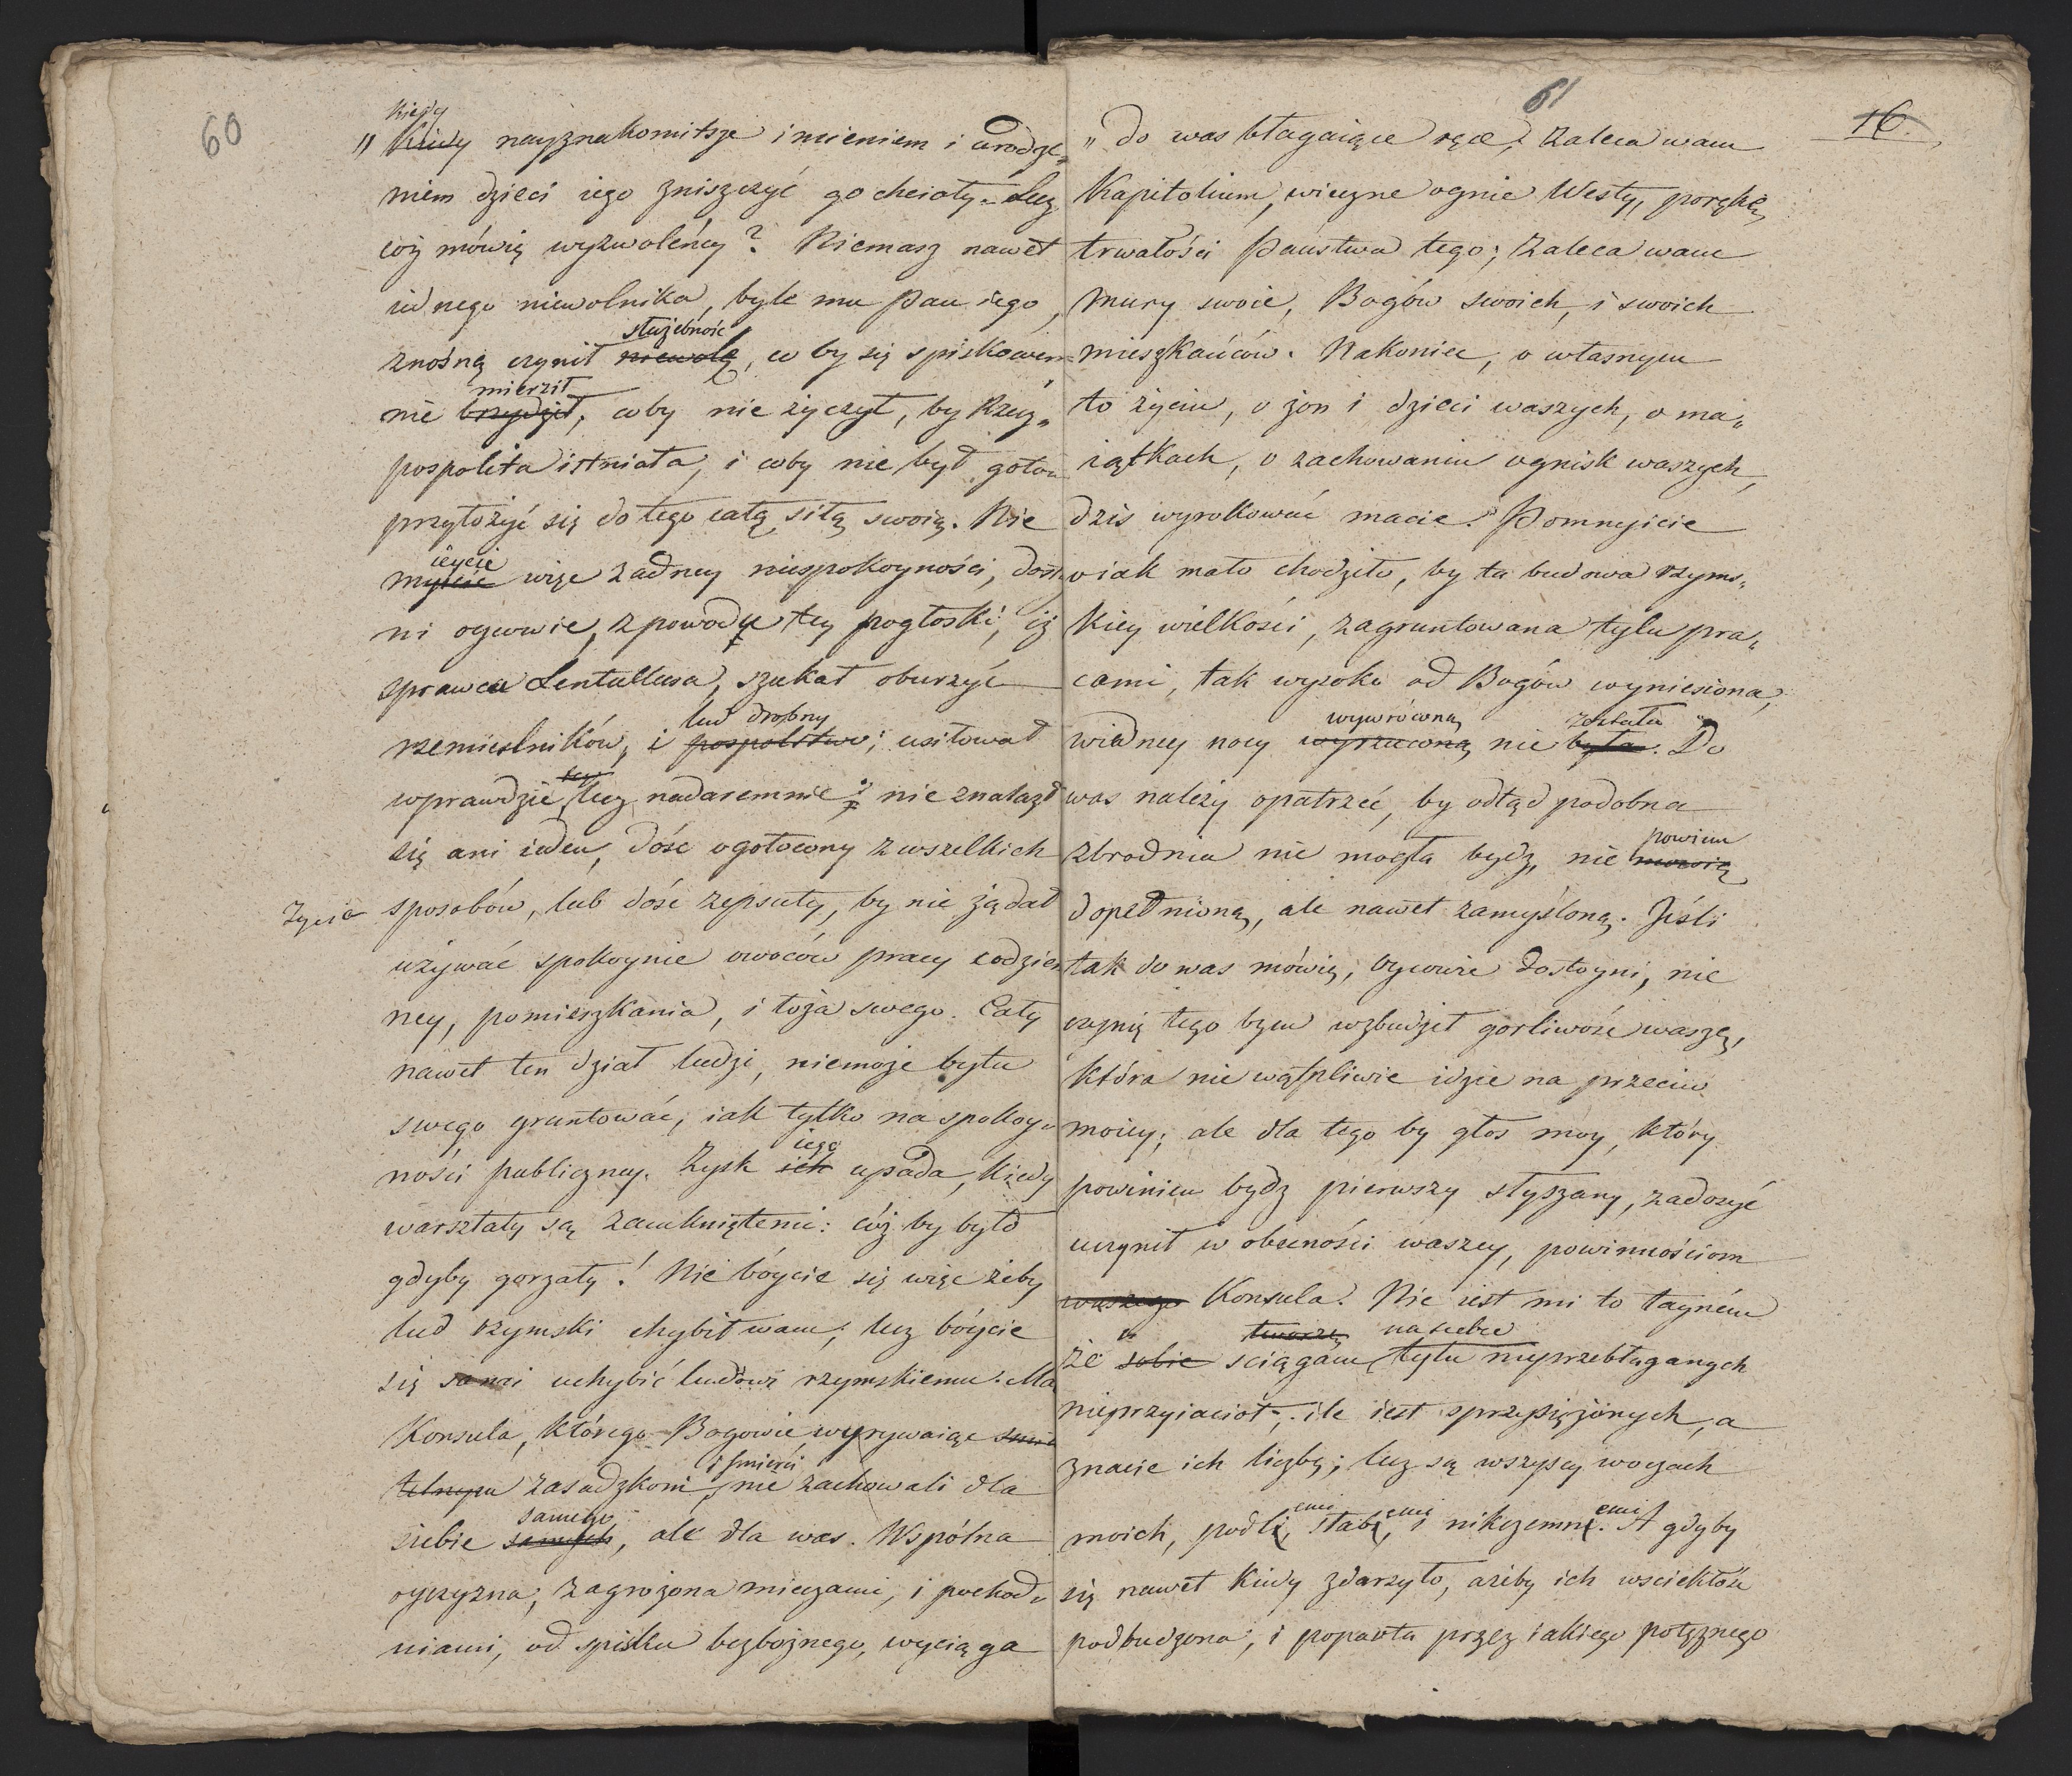 60
Kiedy
„ Kiedy nayznakomitsze imieniem i urodze„
niem dzieci iego zniszczyć go chciały. Lecz
cóż mówię wyzwoleńcy? Niemasz nawet
iednego niewolnika, byle mu Pan iego,
służebność
znośną czynił niewolę, co by się spiskowem
mierził
nie brzydził, coby nie życzył, by Rzecz„
pospolita istniała, i coby nie był gotow
przyłożyć się do tego całą siłą swoią. Nie
ieycie
myście więc żadney niespokoyności, dosto
ni oycowie, z powodu tey pogłoski, iż
sprawca Lentullusa, szukał oburzyć
lud drobny
rzemieslników, i pospolstwo; usiłował
wprawdzie, lecz nadaremnie; nie znalazł
się ani ieden, dość ogołocony z wszelkich
życia sposobów, lub dość zepsuty, by nie żądał
używać spokoynie owoców pracy codzien
ney, pomieszkania, i łoża swego. Cały
nawet ten dział ludzi, niemoże bytu
swego gruntować, iak tylko na spokoy„
iego
ności publiczney. Zysk ich upada, kiedy
warsztaty są zamkniętemi: cóż by było
gdyby gorzały! Nie bóycie się więc żeby
lud rzymski chybił wam; lecz bóycie
się sami uchybić ludowi rzymskiemu. Ma
Konsula, którego Bogowie, wyrywaiąc śmier
i śmierci
telnym zasadzkom, nie zachowali dla
samego
siebie samych, ale dla was. Wspólna
oyczyzna, zagrożona mieczami, i pochod„
niami, od spisku bezbożnego, wyciąga
61
16.
„ do was błagaiące ręce; zaleca wam
Kapitolium, wieczne ognie Westy, porękę,
trwałości Państwa tego; zaleca wam
mury swoie, Bogów swoich, i swoich
mieszkańców. Nakoniec, o własnym
to życiu, o żon i dzieci waszych, o ma„
iątkach, o zachowaniu ognisk waszych,
dzis wyrokować macie. Pomnyicie
o iak mało chodziło, by ta budowa rzyms„
kiey wielkości, zagruntowana tylu pra„
cami, tak wysoko od Bogów wyniesiona,
wywróconą została
wiedney nocy wyrzuconą nie była. Do
was należy opatrzeć, by odtąd podobna
powiem
zbrodnia nie mogła bydź, nie mówię
dopełnioną, ale nawet zamyśloną. Jeśli
tak do was mówię, oycowie dostoyni, nie
czynię tego bym wzbudził gorliwość waszę,
która niewątpliwie idzie na przeciw
moiey; ale dla tego by głos moy, który
powinien bydź pierwszy słyszany, zadosyć
uczynił w obecności waszey, powinnościom
waszego Konsula. Nie iest mi to taynem
tworzę na siebie
że sobie sciągam tylu nieprzebłaganych
nieprzyiaciół, ile iest sprzysiężonych, a
znacie ich liczbę; lecz są wszyscy w oczach
emi emi emi
moich, podli, słabi, i nikczemni. A gdyby
się nawet kiedy zdarzyło, ażeby ich wsciekłość
podbudzona, i poparta przez iakiego potężnego